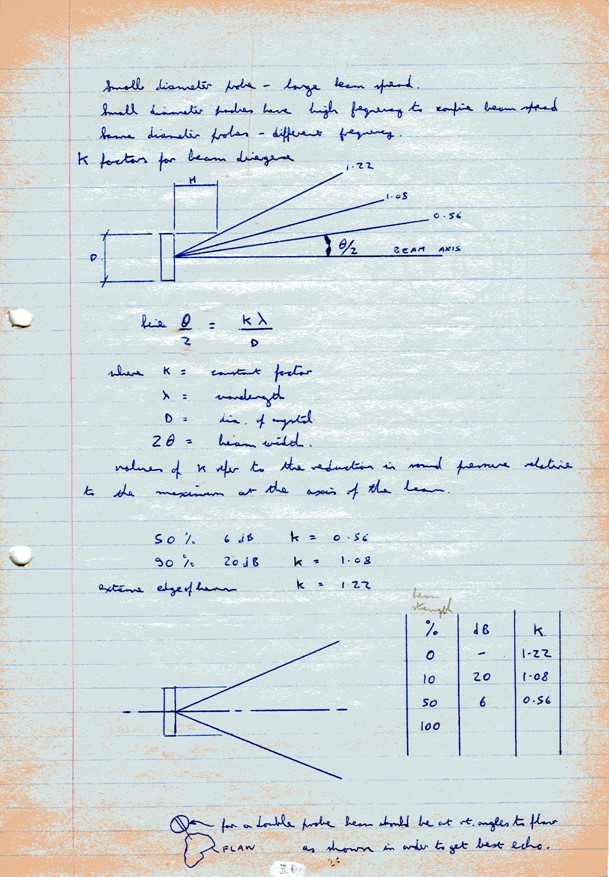 Small diameter probe - large beam spread.
Small diameter probes have high freqency to confine beam spread
Same diameter probes - different freqency.
K factors for beam divergence
H
1.22
1.08
0.56
D
θ/2
BEAM AXIS
Sine θ/2 = Kλ/D
where K = constant factor
λ = wavelength
D = dia. of crystal
2θ = beam width.
values of K refer to the reduction in sound pressure relative
to the maximum at the axis of the beam.
50% 6 dB k = 0.56
90% 20 dB k = 1.08
extreme edge of beam k = 1.22
beam
strength
% dB K
0 - 1.22
10 20 1.08
50 6 0.56
100
for a double probe beam should be at rt. angles to flaw
FLAW as shown in order to get best echo.